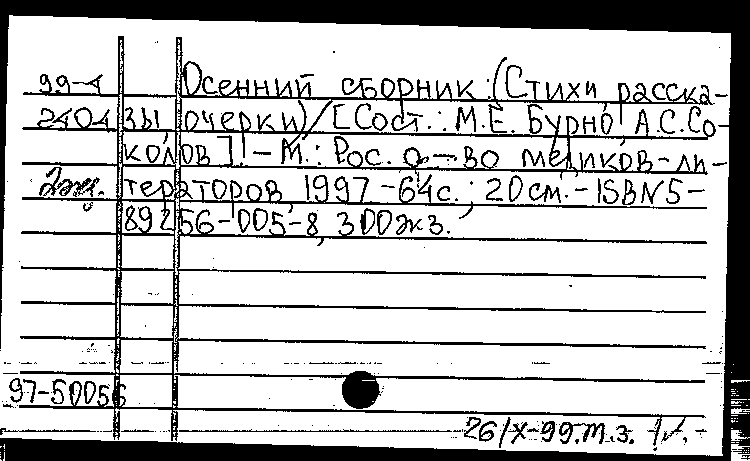 99-4 Осенний сборник: (Стихи, расска-
2404 зы, очерки) / [Сост.: М.Е. Бурно, А.С. Со-
колов]. - М.: Рос. о-во медиков-ли-
2экз. тераторов, 1997. - 64с.; 20см. - ISBN 5-
89256-005-8, 300экз.
97-50056
26/X-99.т.з.